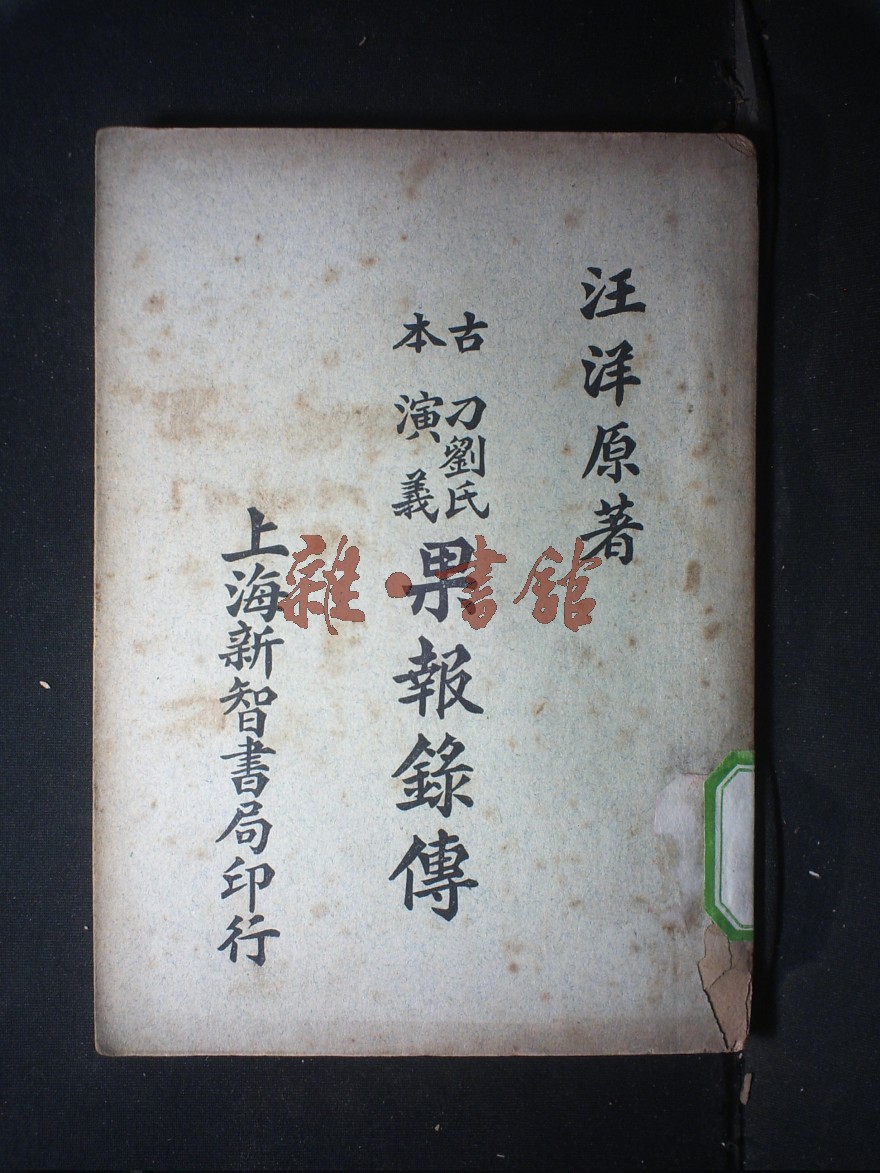 汪洋原著
古本
刁劉氏
演義
果報錄傳
上海新智書局印行
雜·書館